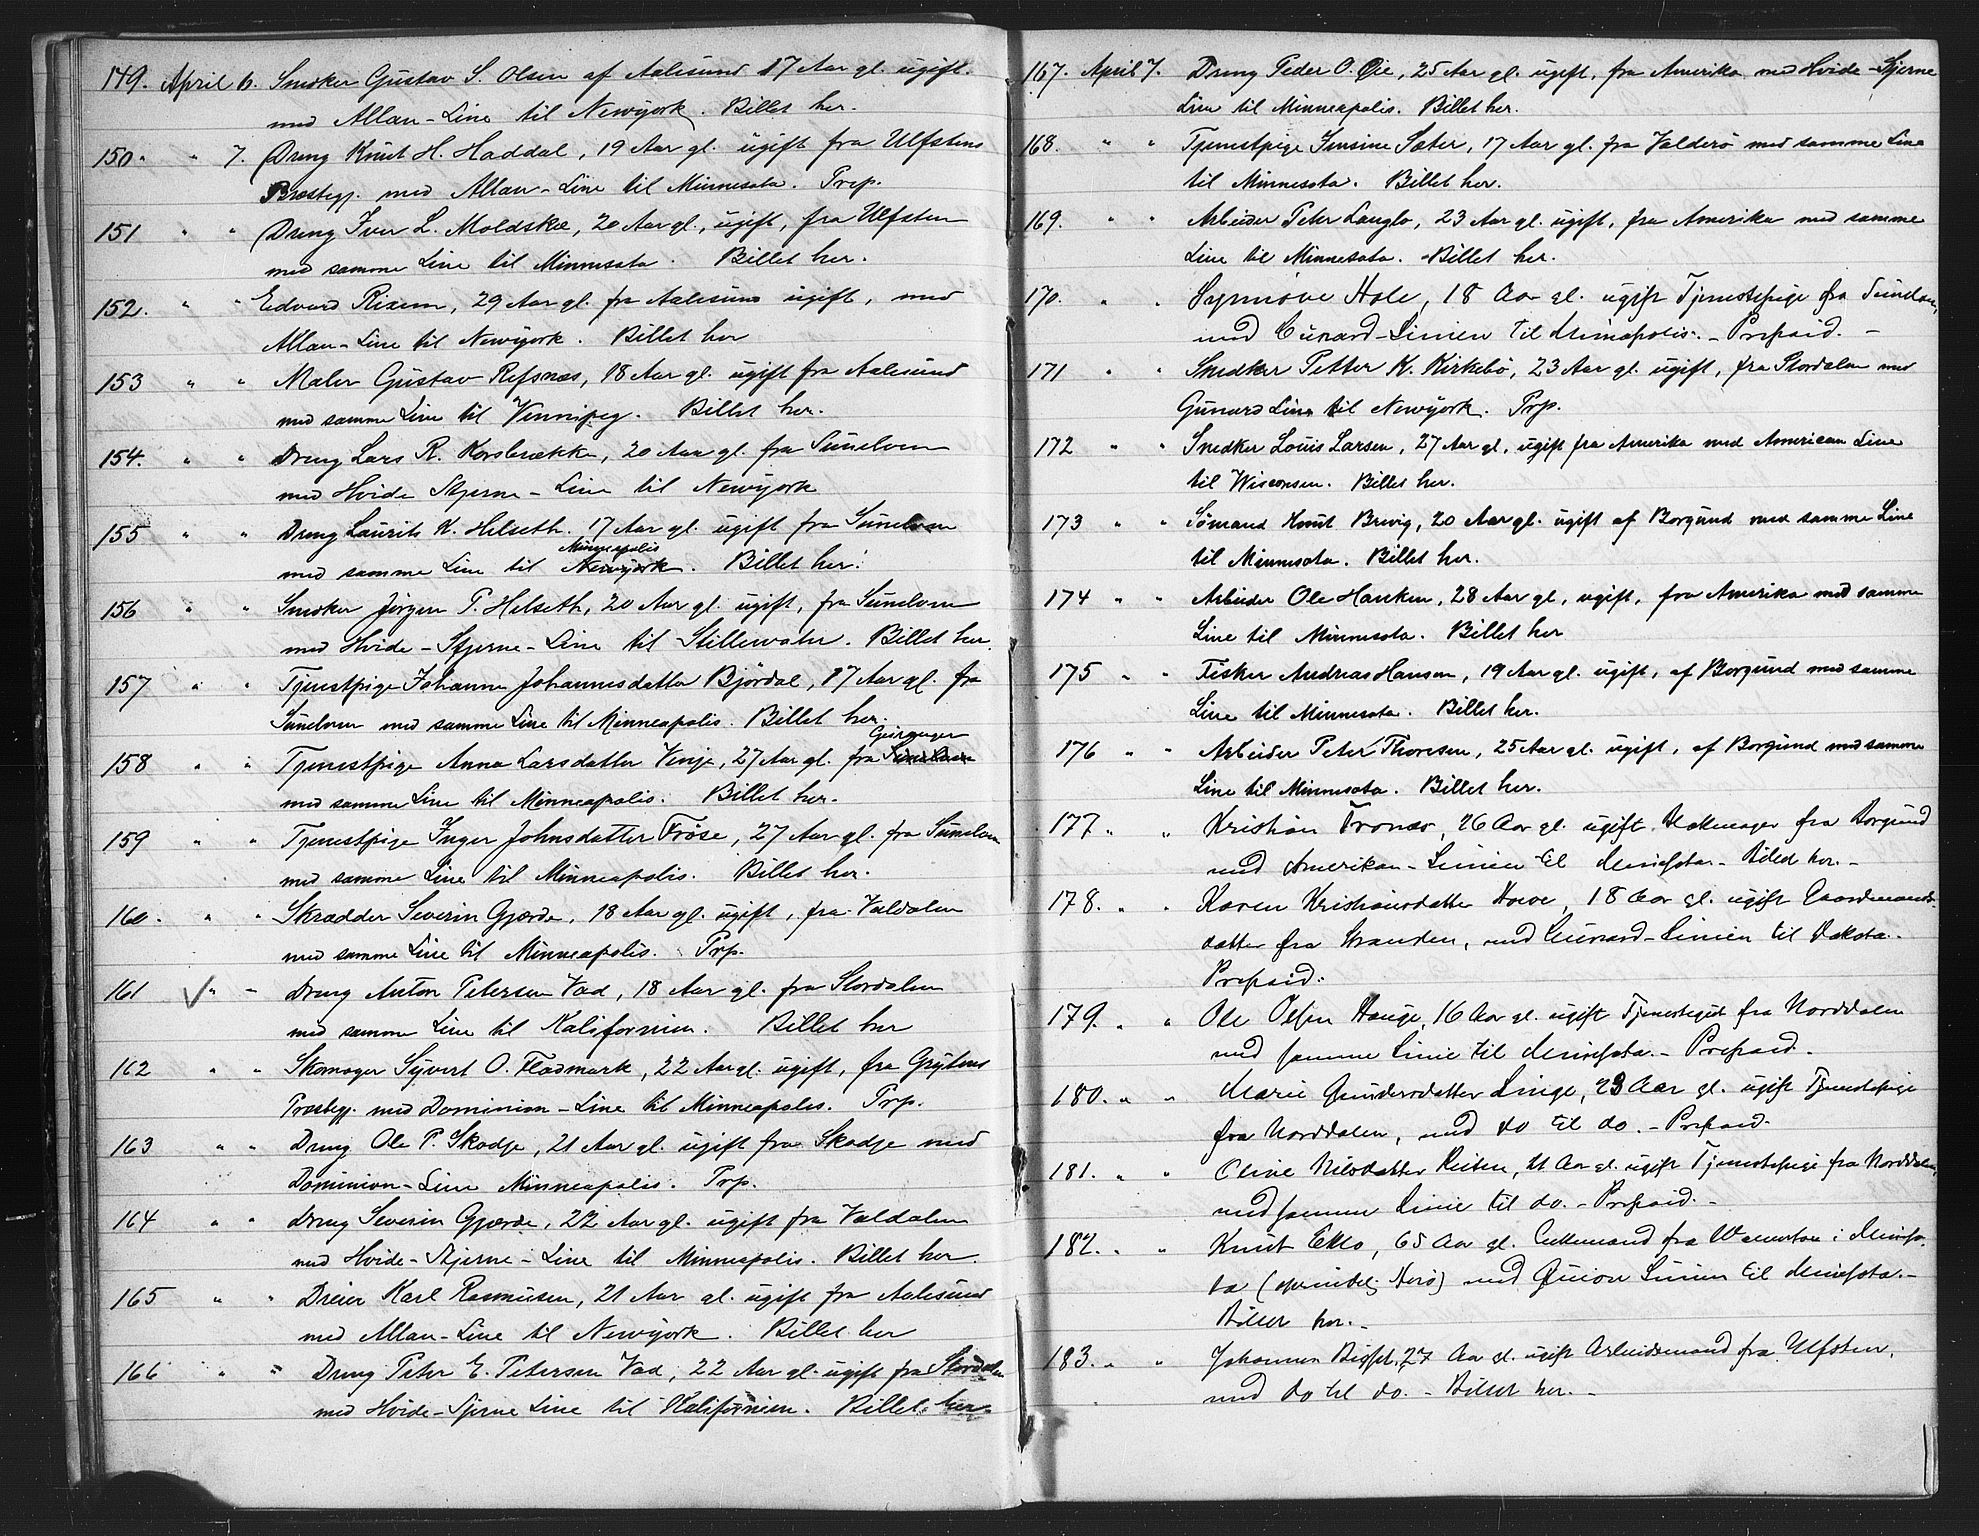 149. April 6. Snedker Gustav S. Olsen af Aalesund 17 Aar gl. ugift.
med Allan-Line til Newyork. Billet her.
150. " 7. Dreng Knut H. Haddal, 19 Aar gl. ugift fra Ulfstens
Præstegj. med Allan-Line til Minnesota. Prep.
151 " " Dreng Iver L. Moldskræ, 20 Aar gl., ugift, fra Ulfsten
med samme Line til Minnesota. Billet her.
152. " " Edvard Rixem, 29 Aar gl. fra Aalesund ugift, med
Allan-Line til Newyork. Billet her
153 " " Maler Gustav Refsnæs, 18 Aar gl. ugift fra Aalesund
med samme Line til Vinnipeg. Billet her.
154. " " Dreng Lars R. Korsbrække, 20 Aar gl. fra Sunelven
med Hvide Stjerne-Line til Newyork
155 " " Dreng Laurits K. Helseth. 17 Aar gl. ugift fra Sunelven
med samme Line til Newyork Minneapolis. Billet her.
156 " " Snedker Jörgen P. Helseth, 20 Aar gl. ugift, fra Sunelven
med Hvide-Stjerne-Line til Stillewater. Billet her.
157 " " Tjenestpige Johanne Johannesdatter Björdal, 17 Aar gl. fra
Sunelven med samme Line til Minneapolis. Billet her.
158 " " Tjenestpige Anna Larsdatter Vinje, 27 Aar gl. fra Sunelven Geiranger
med samme Line til Minneapolis. Billet her.
159 " " Tjenestpige Inger Johnsdatter Fröse, 27 Aar gl. fra Sunelven
med samme Line til Minneapolis. Billet her.
160. " " Skrædder Severin Gjærde, 18 Aar gl. ugift, fra Valdalen
med samme Line til Minneapolis. Prp.
161 " " Dreng Anton Petersen Vad, 18 Aar gl. fra Stordalen
med samme Line til Kalifornien. Billet her
162 " " Skomager Syvert O. Flodmark, 22 Aar gl. ugift, fra Grytens
Præstegj. med Dominion-Line til Minneapolis. Prp.
163 " " Dreng Ole P. Skodje, 21 Aar gl. ugift fra Skodje med
Dominion-Line Minneapolis. Prp.
164 " " Dreng Severin Gjærde, 22 Aar gl. ugift fra Valdalen
med Hvide-Stjerne-Line til Minneapolis. Billet her.
165 " " Dreier Karl Rasmusen, 21 Aar gl. ugift fra Aalesund
med Allan-Line til Newyork. Billet her
166 " " Dreng Peter E. Petersen Vad, 22 Aar gl. ugift fra Stordalen
med Hvide-Sjerne Line til Kalifornien. Billet her.
167. April 7. Dreng Peder O. Øie, 25 Aar gl. ugift, fra Amerika med Hvide-Stjerne
Line til Minneapolis. Billet her.
168. " " Tjenestpige Jensine Sæter, 17 Aar gl. fra Valderö med samme Line
til Minnesota. Billet her.
169. " " Arbeider Peter Langlo, 23 Aar gl. ugift, fra Amerika med samme
Line til Minnesota. Billet her.
170. " " Synnöve Hole, 18 Aar gl. ugift Tjenestepige fra Sunelven,
med Cunard-Linien til Minapolis. - Prepaid. -
171 " " Snedker Petter K. Kirkebö, 23 Aar gl. ugift, fra Stordalen med
Gunard Line til Newyork. Prp.
172 " " Snedker Louis Larsen, 27 Aar gl. ugift fra Amerika med American Line
til Wisconsen. Billet her.
173 " " Sömand Knut Brevig, 20 Aar gl. ugift af Borgund med samme Line
til Minnesota. Billet her.
174 " " Arbeider Ole Hanken, 28 Aar gl, ugift, fra Amerika med samme
Line til Minnesota. Billet her
175 " " Fisker Andreas Hansen, 19 Aar gl. ugift, af Borgund med samme
Line til Minnesota. Billet her.
176 " " Arbeider Peter Thoresen, 25 Aar gl. ugift, af Borgund med samme
Line til Minnesota. Billet her.
177. " Kristian Tronæs, 26 Aar gl. ugift fra Borgund
med Amerikan-Linien til Minesota - Billed her. -
178. " " Karen Kristiansdatter Hove, 18 Aar gl. ugift Gaardmands-
datter fra Stranden, med Cunard-Linien til Dakota.
Prepaid.
179. " " Ole Olsen Hauge, 16 Aar gl. ugift Tjenestegut fra Norddalen
med samme Linie til Minesota. - Prepaid. -
180. " " Marie Gundersdatter Linge, 23 Aar gl. ugift Tjenestepige
fra Norddalen, med do til do. - Prepaid.
181. " " Oline Nilsdatter Reiten, 21 Aar gl. ugift Tjenestepige fra Norddalen,
med samme Linie til do. - Prepaid. -
182. " " Knut Eklo, 65 Aar gl. Enkemand fra i Mineso-
ta (oprindel. Herö) med Guion Linien til Minesota. -
Billet her. -
183. " " Johannes 27 Aar gl. ugift Arbeidsmand fra Ulfsten,
med do til do. - Billet her. -